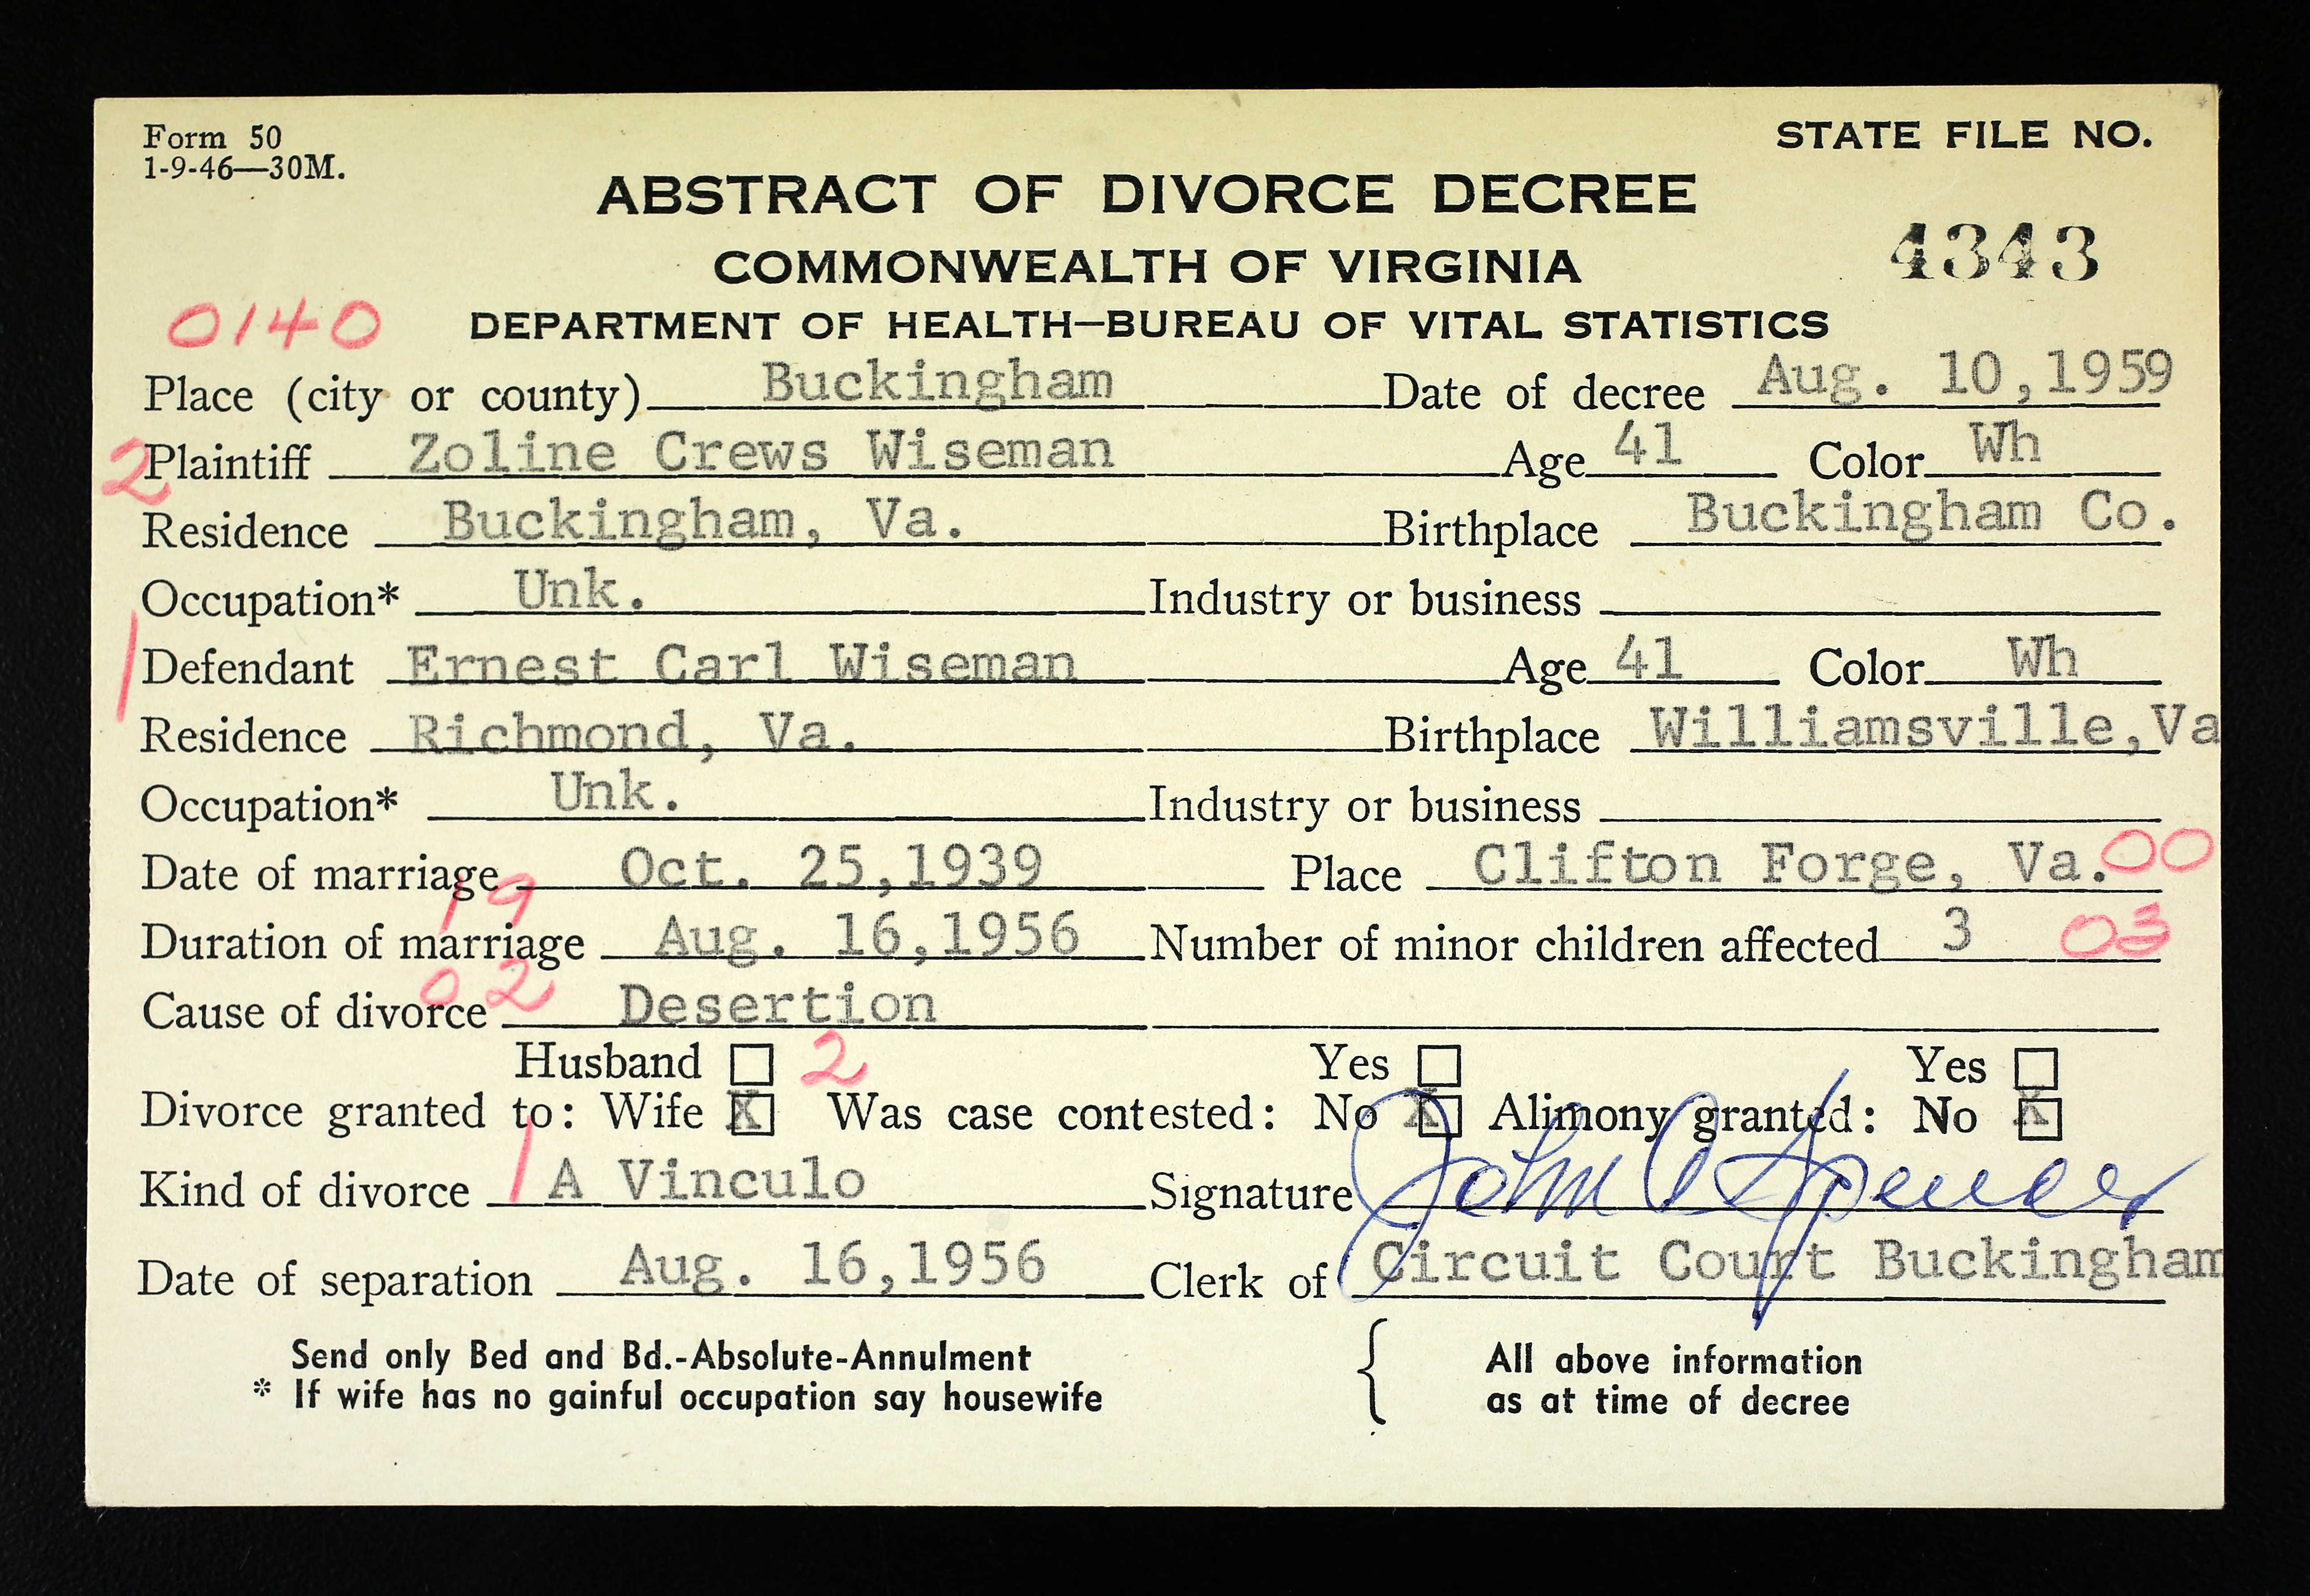 Form 50
1-9-46—30M.
STATE FILE NO.
ABSTRACT OF DIVORCE DECREE
4343
COMMONWEALTH OF VIRGINIA
0140
DEPARTMENT OF HEALTH—BUREAU OF VITAL STATISTICS
Place (city or county) Buckingham Date of decree Aug. 10,1959
2 Plaintiff Zoline Crews Wiseman Age 41 Color Wh
Residence Buckingham, Va. Birthplace Buckingham Co.
Occupation* Unk. Industry or business
1 Defendant Ernest Carl Wiseman Age 41 Color Wh
Residence Richmond, Va. Birthplace Williamsville,Va
Occupation* Unk. Industry or business
Date of marriage Oct. 25,1939 Place Clifton Forge, Va. 00
19
Duration of marriage Aug. 16,1956 Number of minor children affected 3 03
02
Cause of divorce Desertion
Husband 2 Yes Yes
Divorce granted to: Wife X Was case contested: No X Alimony granted: No X
Kind of divorce 1 A Vinculo Signature John Spencer
Date of separation Aug. 16,1956 Clerk of Circuit Court Buckingham
Send only Bed and Bd.-Absolute-Annulment { All above information
* If wife has no gainful occupation say housewife as at time of decree